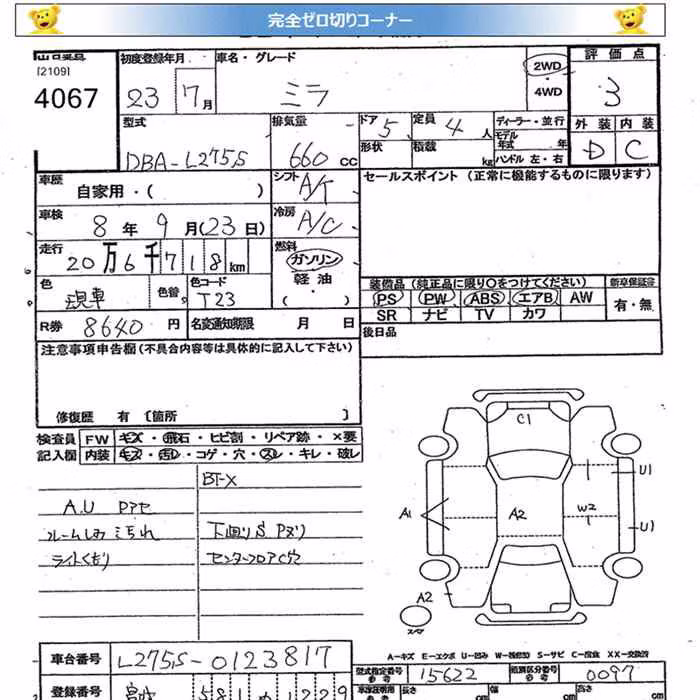 完全ゼロ切りコーナー
[2109]
4067
初度登録年月
23 7月
車名・グレード
ミラ
2WD
4WD
評価点
3
外装 内装
D C
型式
DBA-L275S
排気量
660 cc
ドア 5
定員 4 人
形状
積載 kg
ディーラー・並行
モデル年式 年
ハンドル 左・右
車歴
自家用・( )
シフト A/T
車検
8年 9月(23日)
冷房 A/C
走行
20万6千718km
燃料
ガソリン
軽油
(・)
色
現車
色替
色コード
T23
R券 8640円
名変通知期限 月 日
セールスポイント (正常に機能するものに限ります)
装備品(純正品に限り○をつけてください)
PS PW ABS エアB AW
SR ナビ TV カワ
新車保証書
有・無
後日品
注意事項申告欄(不具合内容等は具体的に記入して下さい)
修復歴 有 〔箇所 〕
検査員記入欄
FW キズ・飛石・ヒビ割・リペア跡・×要
内装 キズ・汚レ・コゲ・穴・スレ・キレ・破レ
BT-X
A.U Pアセ
ルームしみ 汚れ
ライトくもり
下廻りS Pヌリ
センターフロア穴
C1
U1
A1
A2
W2
U1
A2
スペア
A-キズ E-エクボ U-凹み S-サビ C-腐食 XX-交換済
車台番号 L275S-0123817
型式指定番号 15622
類別区分番号 0097
登録番号
長さ cm
幅 cm
高さ cm